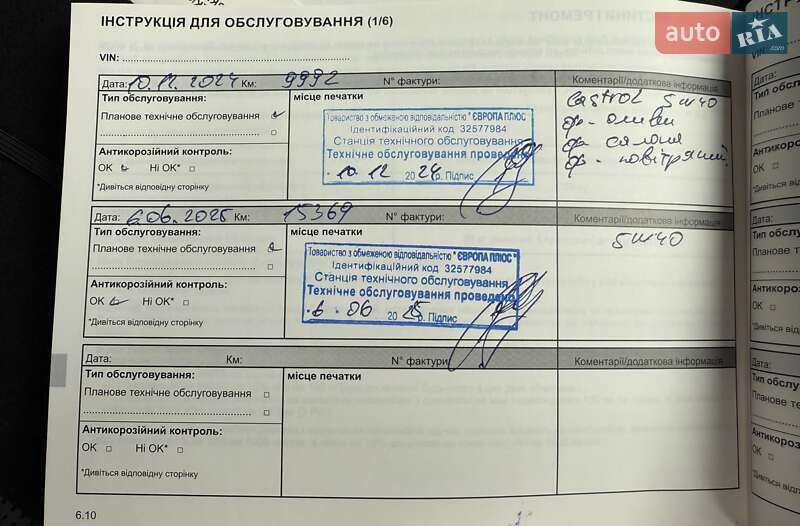 ІНСТРУКЦІЯ ДЛЯ ОБСЛУГОВУВАННЯ (1/6)
auto RIA .com
VIN:
VIN:
Дата: 10.12.2024 Км: 9992 N° фактури: Коментарії/додаткова інформація
Тип обслуговування:
Планове технічне обслуговування
Антикорозійний контроль:
OK Ні OK*
*Дивіться відповідну сторінку
місце печатки
Товариство з обмеженою відповідальністю "ЄВРОПА ПЛЮС"
Ідентифікаційний код 32577984
Станція технічного обслуговування
Технічне обслуговування проведено
10 12 2024 р. Підпис
Castrol 5w40
ф- оливи
ф- салона
ф- повітряний
Дата: 6.06.2025 Км: 15369 N° фактури: Коментарії/додаткова інформація
Тип обслуговування:
Планове технічне обслуговування
Антикорозійний контроль:
OK Ні OK*
*Дивіться відповідну сторінку
місце печатки
Товариство з обмеженою відповідальністю "ЄВРОПА ПЛЮС"
Ідентифікаційний код 32577984
Станція технічного обслуговування
Технічне обслуговування проведено
6. 06 2025 р. Підпис
5w40
Дата: Км: N° фактури: Коментарії/додаткова інформація
Тип обслуговування:
Планове технічне обслуговування
Антикорозійний контроль:
OK Ні OK*
*Дивіться відповідну сторінку
місце печатки
6.10